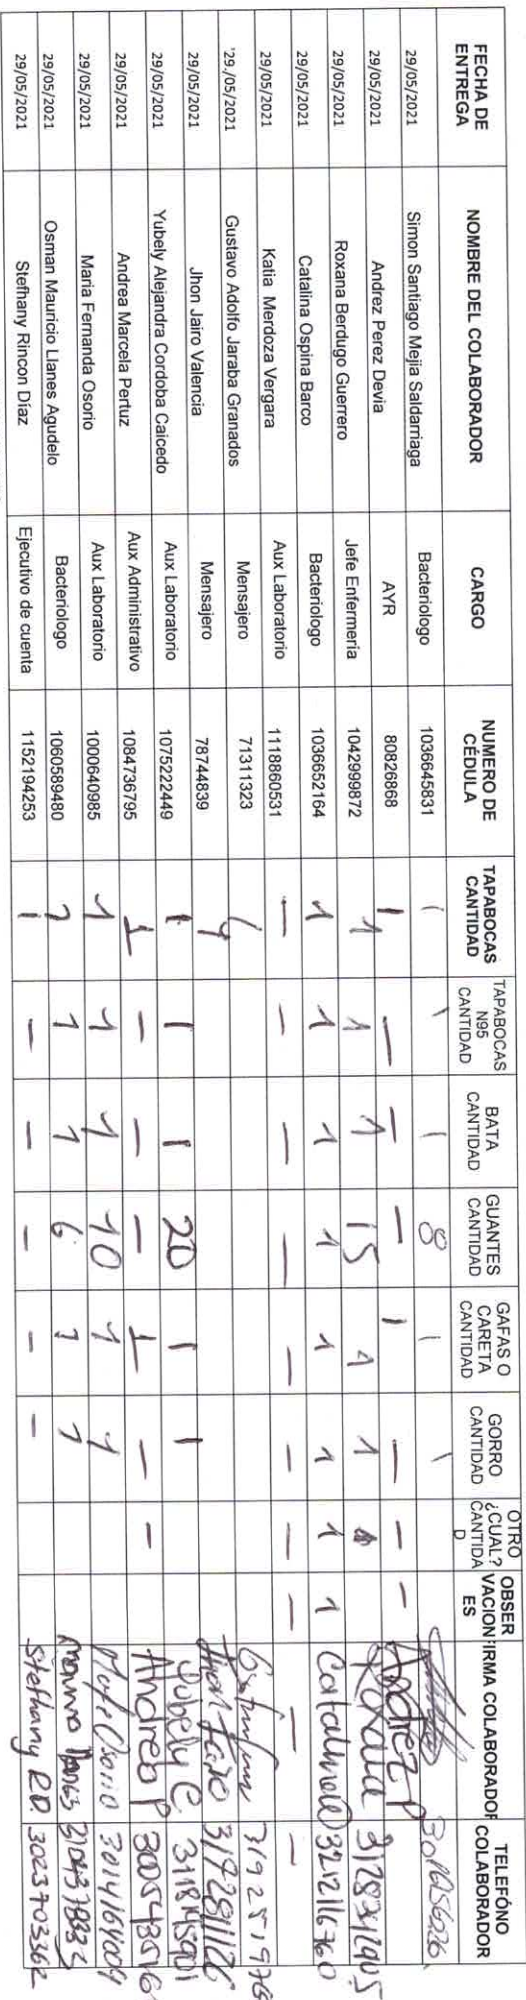 FECHA DE ENTREGA NOMBRE DEL COLABORADOR CARGO NUMERO DE CÉDULA TAPABOCAS CANTIDAD TAPABOCAS N95 CANTIDAD BATA CANTIDAD GUANTES CANTIDAD GAFAS O CARETA CANTIDAD GORRO CANTIDAD OTRO ¿CUAL? CANTIDA D OBSER VACION ES FIRMA COLABORADOR TELEFÓNO COLABORADOR
29/05/2021 Simon Santiago Mejia Saldarriaga Bacteriologo 1036645831 1 1 1 8 1 1
29/05/2021 Andrez Perez Devia AYR 80826868 1 — — — 1 — — — Andrez P
29/05/2021 Roxana Berdugo Guerrero Jefe Enfermeria 1042999872 1 1 1 15 1 1 1 Roxana
29/05/2021 Catalina Ospina Barco Bacteriologo 1036652164 1 1 1 1 1 1 1 1 3212116760
29/05/2021 Katia Merdoza Vergara Aux Laboratorio 1118860531 — — — — — — — — — —
29/05/2021 Gustavo Adolfo Jaraba Granados Mensajero 71311323
29/05/2021 Jhon Jairo Valencia Mensajero 78744839 Jhon Jairo
29/05/2021 Yubely Alejandra Cordoba Caicedo Aux Laboratorio 1075222449 1 1 1 20 1 1 Yubely C
29/05/2021 Andrea Marcela Pertuz Aux Administrativo 1084736795 1 — — — 1 — — Andrea P 3005438516
29/05/2021 Maria Fernanda Osorio Aux Laboratorio 1000640985 1 1 1 10 1 1 Mafe Osorio 3014164009
29/05/2021 Osman Mauricio Llanes Agudelo Bacteriologo 1060589480 1 1 1 6 1 1
29/05/2021 Stefhany Rincon Díaz Ejecutivo de cuenta 1152194253 1 — — — — — Stefhany R.D. 3023703362